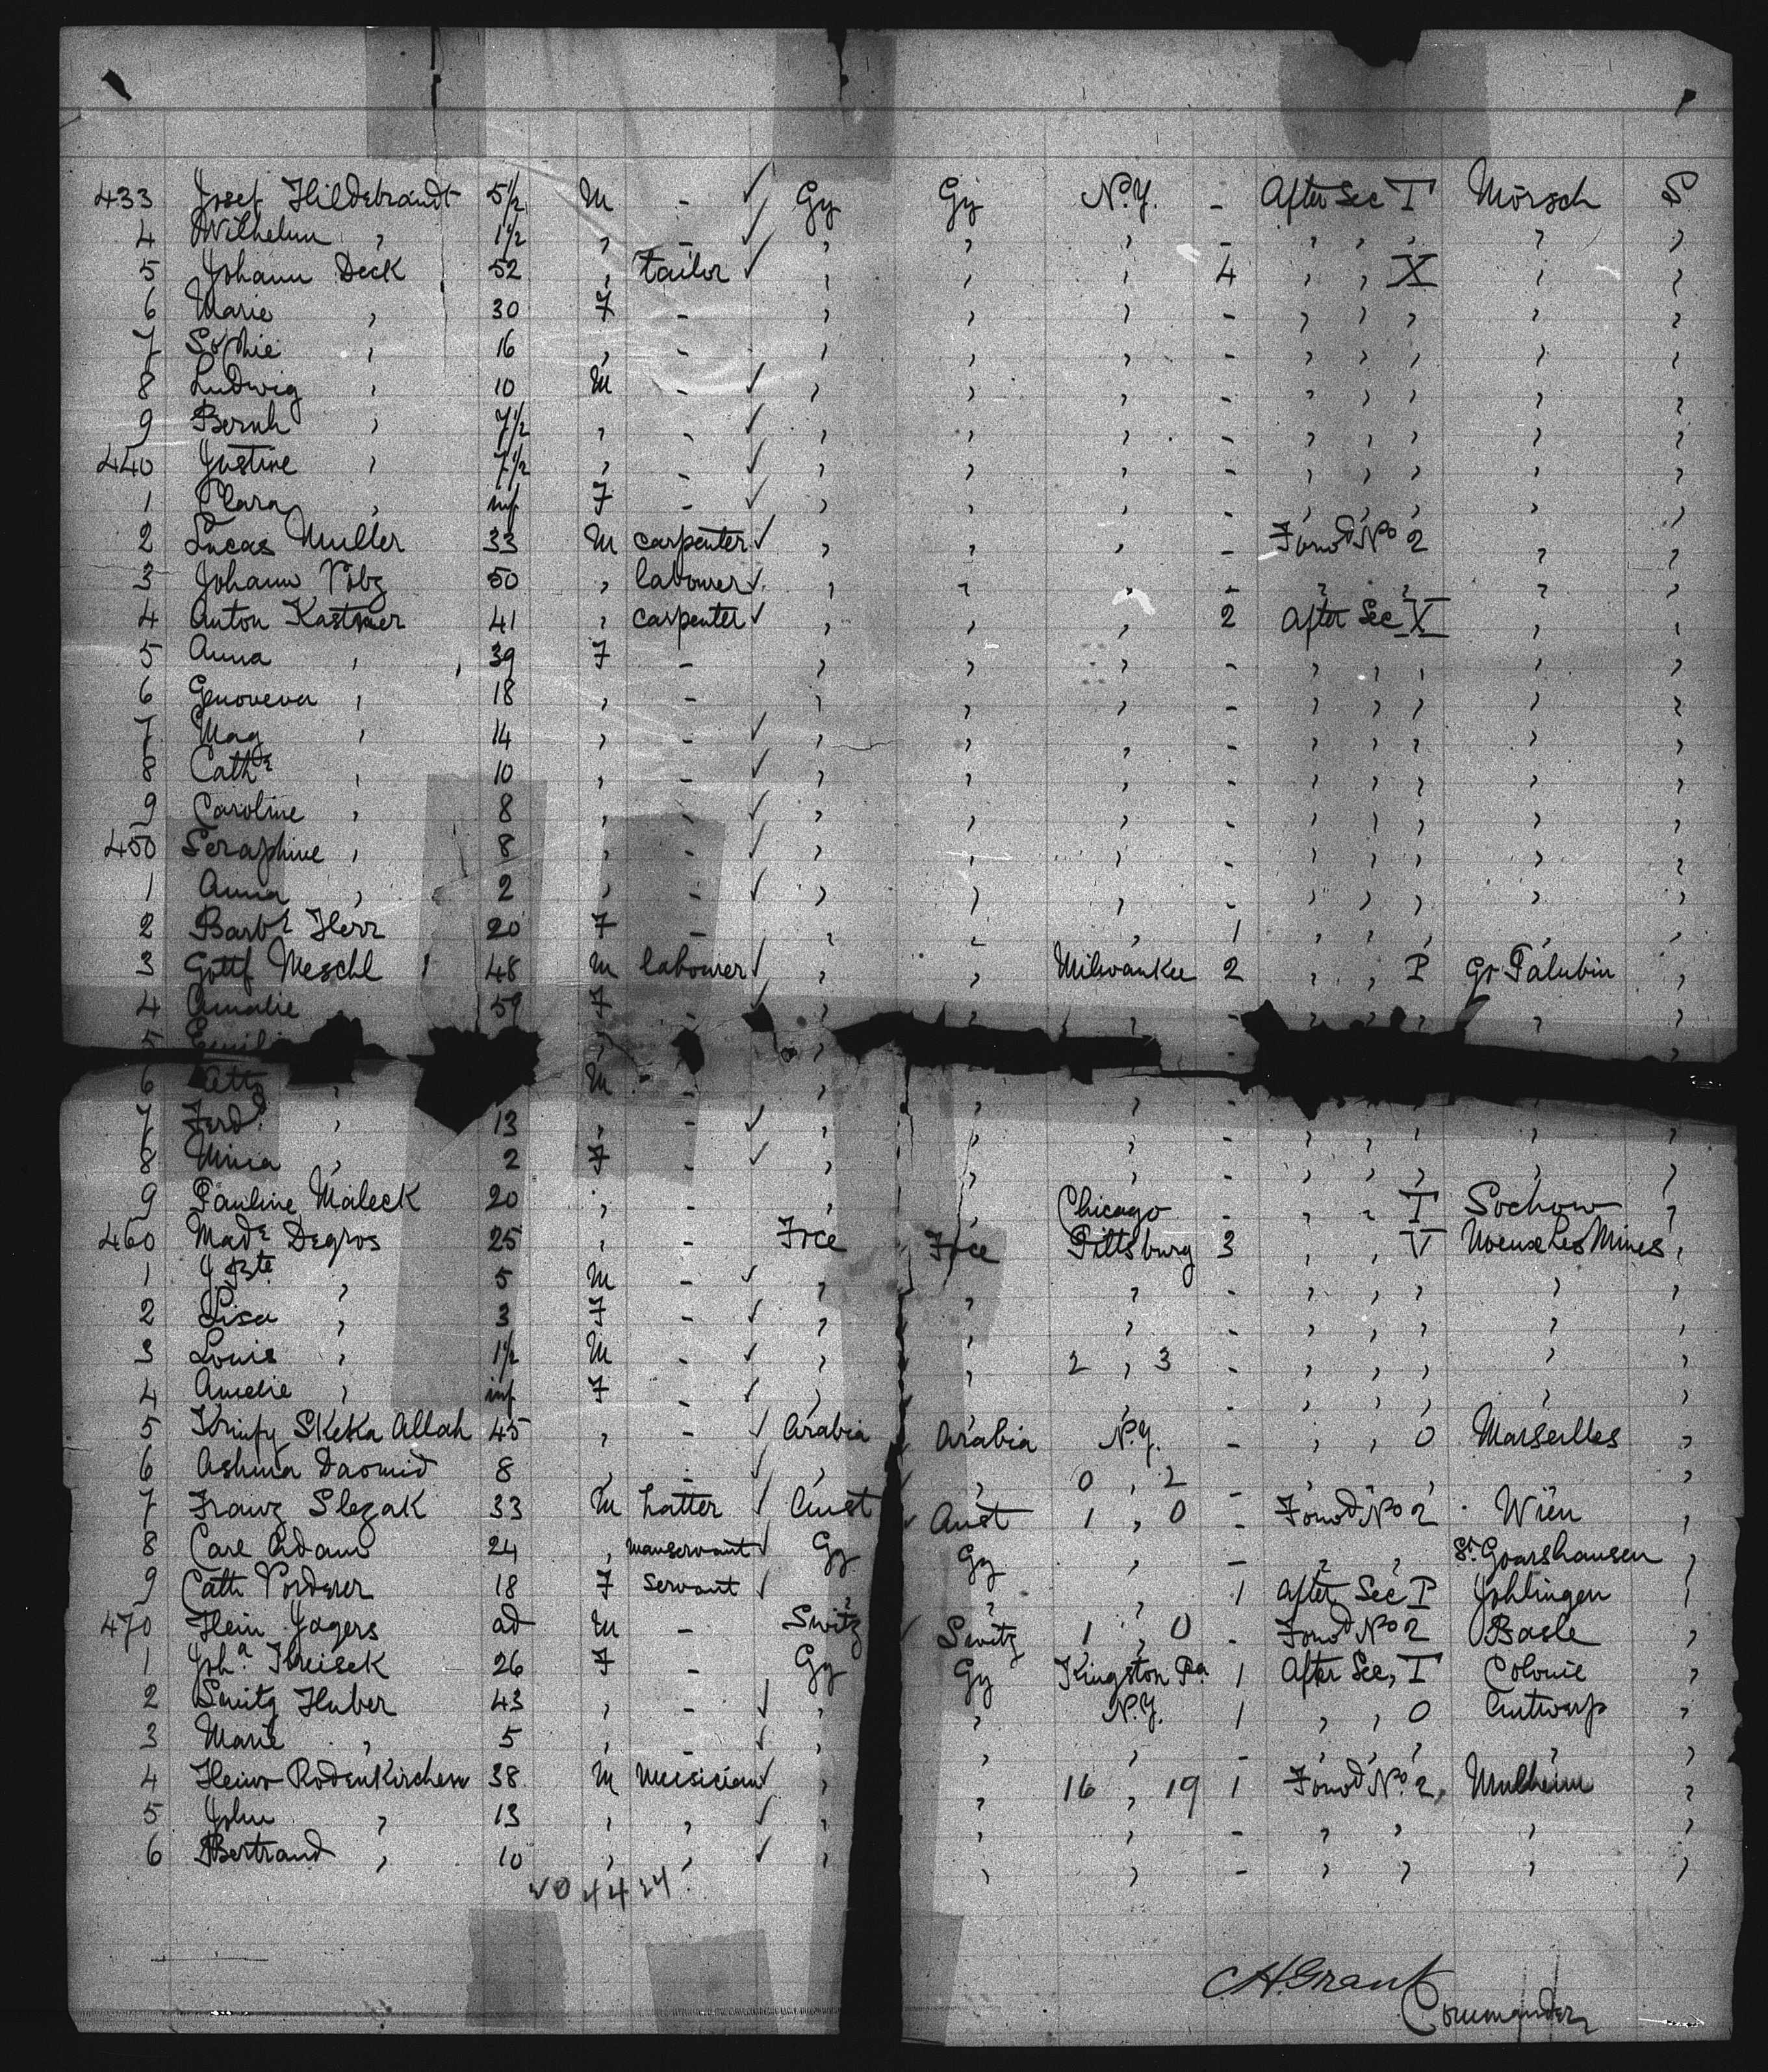 433 Josef Hildebrandt 5½ M - ✓ Gy Gy N.Y. - After Sec T Mörsch S
4 Wilhelm , 1½ , - ✓ , , , - , , , , ,
5 Johann Deck 52 , tailor ✓ , , , 4 , , X , ,
6 Marie , 30 F - , , , - , , , , ,
7 Sophie , 16 , - , , , - , , , , ,
8 Ludwig , 10 M - ✓ , , , - , , , , ,
9 Bernh , 7½ , - ✓ , , , - , , , , ,
440 Justine , 7½ , - ✓ , , , - , , , , ,
1 Clara , inf F - ✓ , , , - , , , , ,
2 Lucas Muller 33 M carpenter ✓ , , , - Forwd No 2 , ,
3 Johann 50 , labourer ✓ , , , - , , , ,
4 Anton Kastner 41 , carpenter ✓ , , , 2 After Sec X , ,
5 Anna , 39 F - , , , - , , , , ,
6 Genoveva , 18 , - , , , - , , , , ,
7 Mag , 14 , - ✓ , , , - , , , , ,
8 Cathe , 10 , - ✓ , , , - , , , , ,
9 Caroline , 8 , - ✓ , , , - , , , , ,
450 Seraphine , 8 , - ✓ , , , - , , , , ,
1 Anna , 2 , - ✓ , , , - , , , , ,
2 Barb Herr 20 F - , , , 1 , , , , ,
3 Gottf Meschl 48 M labourer ✓ , , Milwaukee 2 , , P Gr Palubin ,
4 Amalie 59 F - ✓ , , , - , , , , ,
5 , , - ,
6 Otto , M - , , , -
7 Ferdd , 13 , - ✓ , , , - , , , , ,
8 Mina , 2 F - ✓ , , , - , , , , ,
9 Pauline Maleck 20 , - , , Chicago - , , T Sochow ,
460 Made Degros 25 , - Frce Frce Pittsburg 3 , , V Noeux Les Mines ,
1 J Bte , 5 M - ✓ , , , - , , , , ,
2 Lisa , 3 F - ✓ , , , - , , , , ,
3 Louis , 1½ M - ✓ , , 2 , 3 - , , , , ,
4 Amelie , inf F - ✓ , , , - , , , , ,
5 Skeka Allah 45 , - ✓ Arabia Arabia N.Y. - , , O Marseilles ,
6 Ashma Daomid 8 , - ✓ , , 0 , 2 - , , , ,
7 Franz Slezak 33 M hatter ✓ Aust Aust 1 , 0 - Forwd No 2 Wien ,
8 Carl Adam 24 , manservant ✓ Gy Gy , - , , St. Goarshausen ,
9 Cath Vorderer 18 F servant ✓ , , , 1 After Sec P Johlingen ,
470 Hein Jagers ad M - Switz Switz 1 , 0 - Forwd No 2 Basle ,
1 Joha 26 F - Gy Gy Kingston Pa. 1 After Sec, T Colonie ,
2 Huber 43 , - ✓ , , N.Y. 1 , , O Antwerp ,
3 Marie , 5 , - ✓ , , , - , , , , ,
4 Heinr Rodenkirchen 38 M musician ✓ , , 16 , 19 1 Forwd No. 2, Mulheim ,
5 John , 13 , , ✓ , , , - , , , ,
6 Bertrand , 10 , , ✓ , , , - , , , ,
CH. Grant
Commander